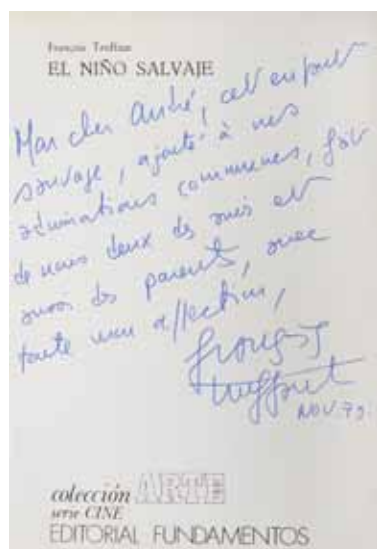 François Truffaut
EL NIÑO SALVAJE
Mon cher André, cet enfant
sauvage, ajouté à nos
admirations communes, fait
de nous deux des amis et
aussi des parents, avec
toute mon affection,
françois
truffaut
NOV. 79.
colección ARTE
serie CINE
EDITORIAL FUNDAMENTOS